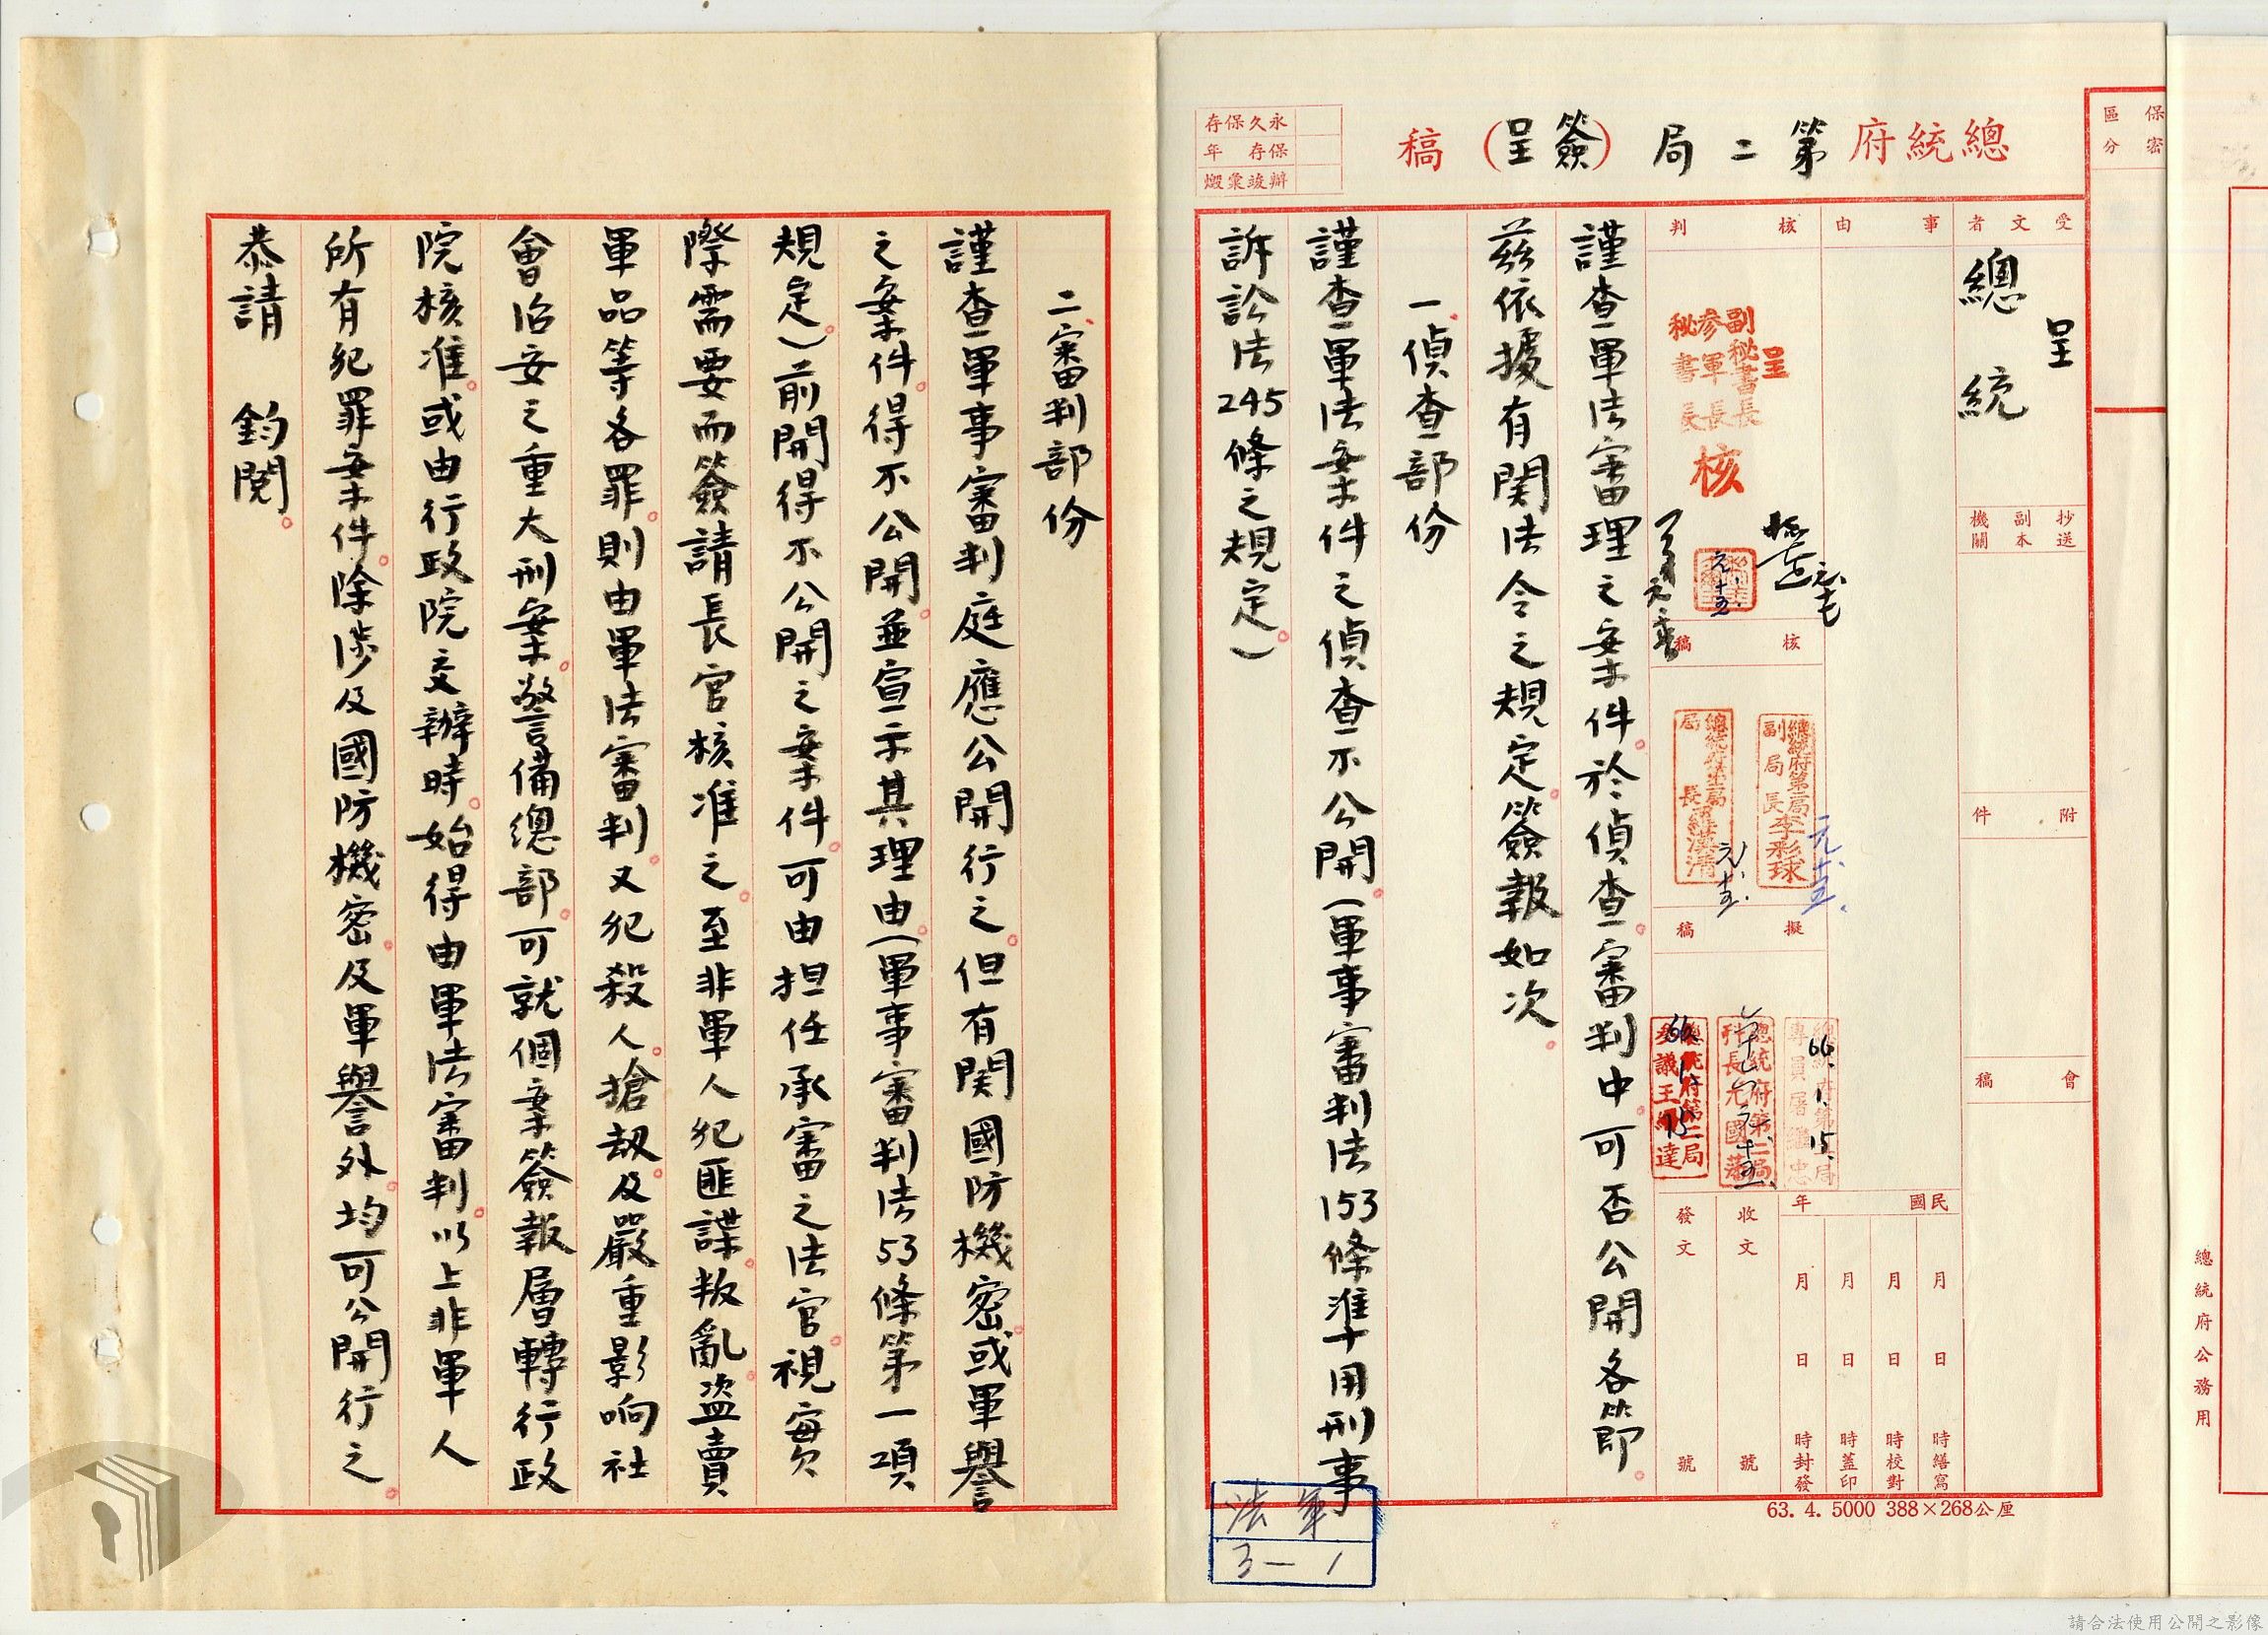 保密
區分
總統府第二局(簽呈)稿
永久保存
保存 年
辦竣彙燬
受文者
呈
總統
抄送
副本
機關
附件
會稿
事由
核判
呈
副秘書長
參軍長
秘書長
核
元、十五、
核稿
總統府第二局
副局長李彩球
元、十五、
總統府第二局
局長羅漢清
元、十五、
擬稿
總統府第二局
專員屠繼忠
66. 1. 15.
總統府第二局
科長尤國藩
元、十五、
總統府第二局
參議王 達
66 1 15
民國 年
月 日 時繕寫
月 日 時校對
月 日 時蓋印
月 日 時封發
收文 號
發文 號
謹查軍法審理之案件。於偵查。審判中。可否公開各節。
茲依據有関法令之規定。簽報如次。
一、偵查部份
謹查軍法案件之偵查不公開。(軍事審判法153條準用刑事
訴訟法245條之規定。)
63. 4. 5000 388×268公厘
軍法
3—1
總統府公務用
二、審判部份
謹查軍事審判庭應公開行之。但有関國防機密。或軍譽
之案件。得不公開。並宣示其理由。(軍事審判法53條第一項
規定。)前開得不公開之案件。可由担任承審之法官。視實
際需要而簽請長官核准之。至非軍人犯匪諜。叛亂。盜賣
軍品等各罪。則由軍法審判。又犯殺人。搶劫。及嚴重影响社
會治安之重大刑案。警備總部。可就個案簽報層轉行政
院核准。或由行政院交辦時。始得由軍法審判。以上非軍人
所有犯罪案件。除涉及國防機密。及軍譽外。均可公開行之。
恭請 鈞閱。
請合法使用公開之影像